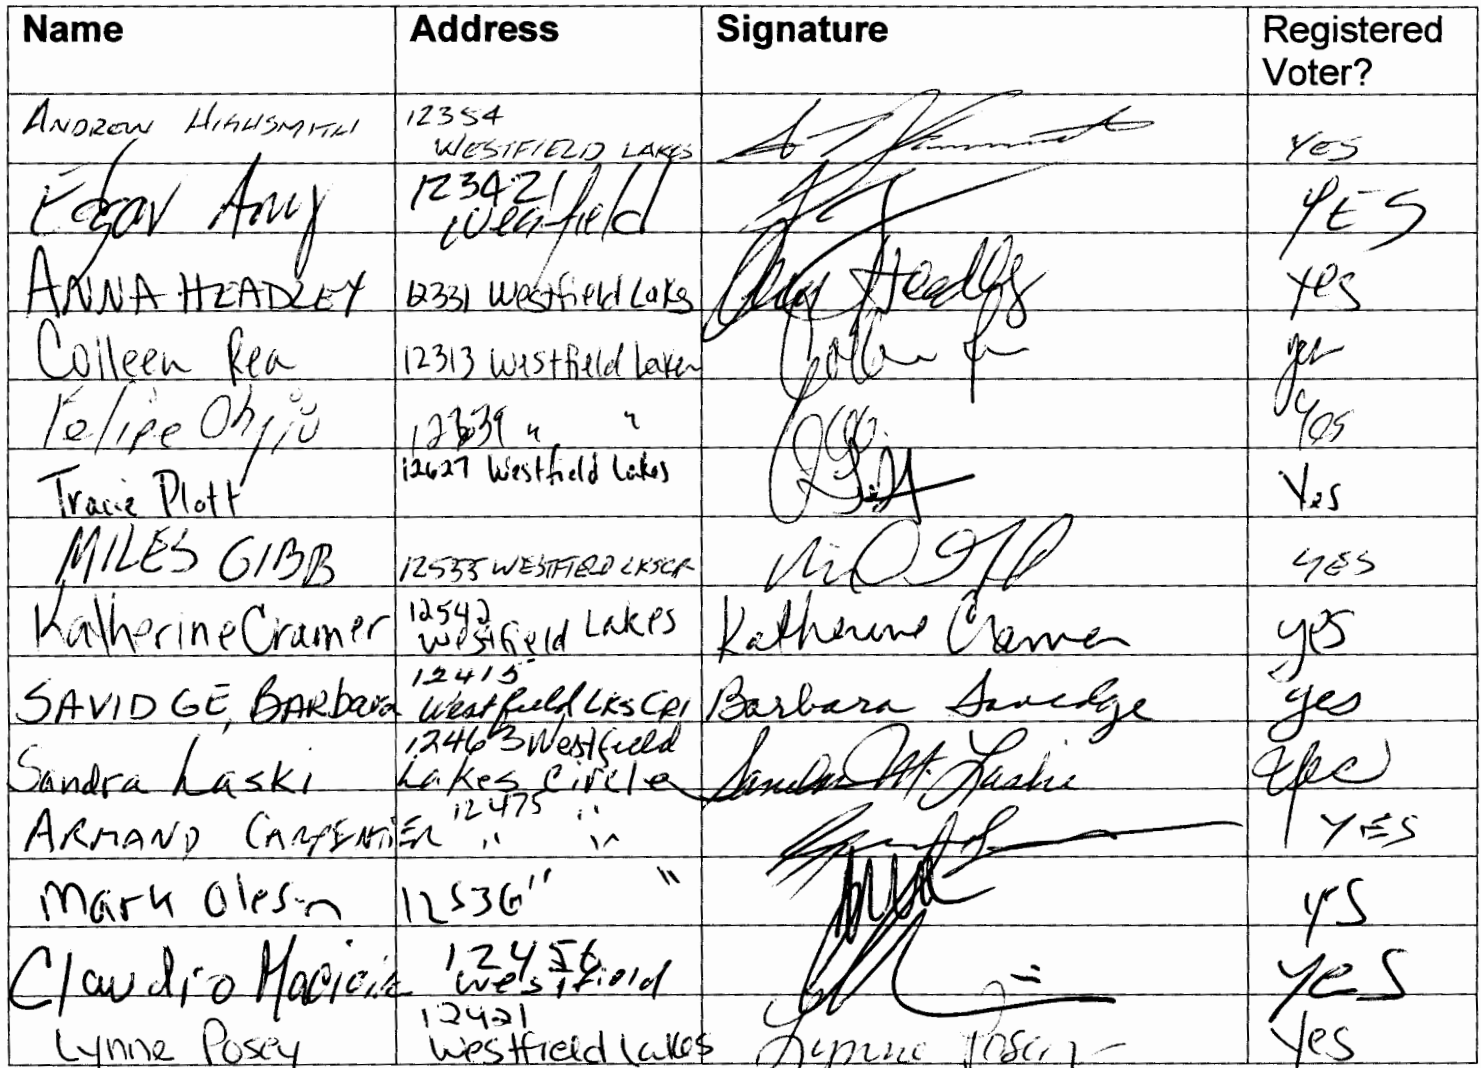 Name Address Signature Registered
Voter?
ANDREW HIGHSMITH 12354
WESTFIELD LAKES YES
Edgar Amy 12342
Westfield YES
ANNA HEADLEY 12331 Westfield Laks Headley yes
Colleen Rea 12313 Westfield Laken yes
Felipe 12339 " " Yes
Tracie Plott 12627 Westfield Lakes Yes
MILES GIBB 12535 WESTFIELD LKSCR YES
Katherine Cramer 12542
Westfield Lakes Katherine Cramer yes
SAVIDGE, BARBara 12415
Westfield LKS CRI Barbara Savidge yes
Sandra Laski 12463 Westfield
Lakes Circle Sandra M. Laski yes
ARMAND CARPENTIER 12475 "
" " YES
Mark Olesn 12536 " " yS
Claudio 12456
Westfield yes
Lynne Posey 12421
Westfield Lakes Lynne Posey Yes